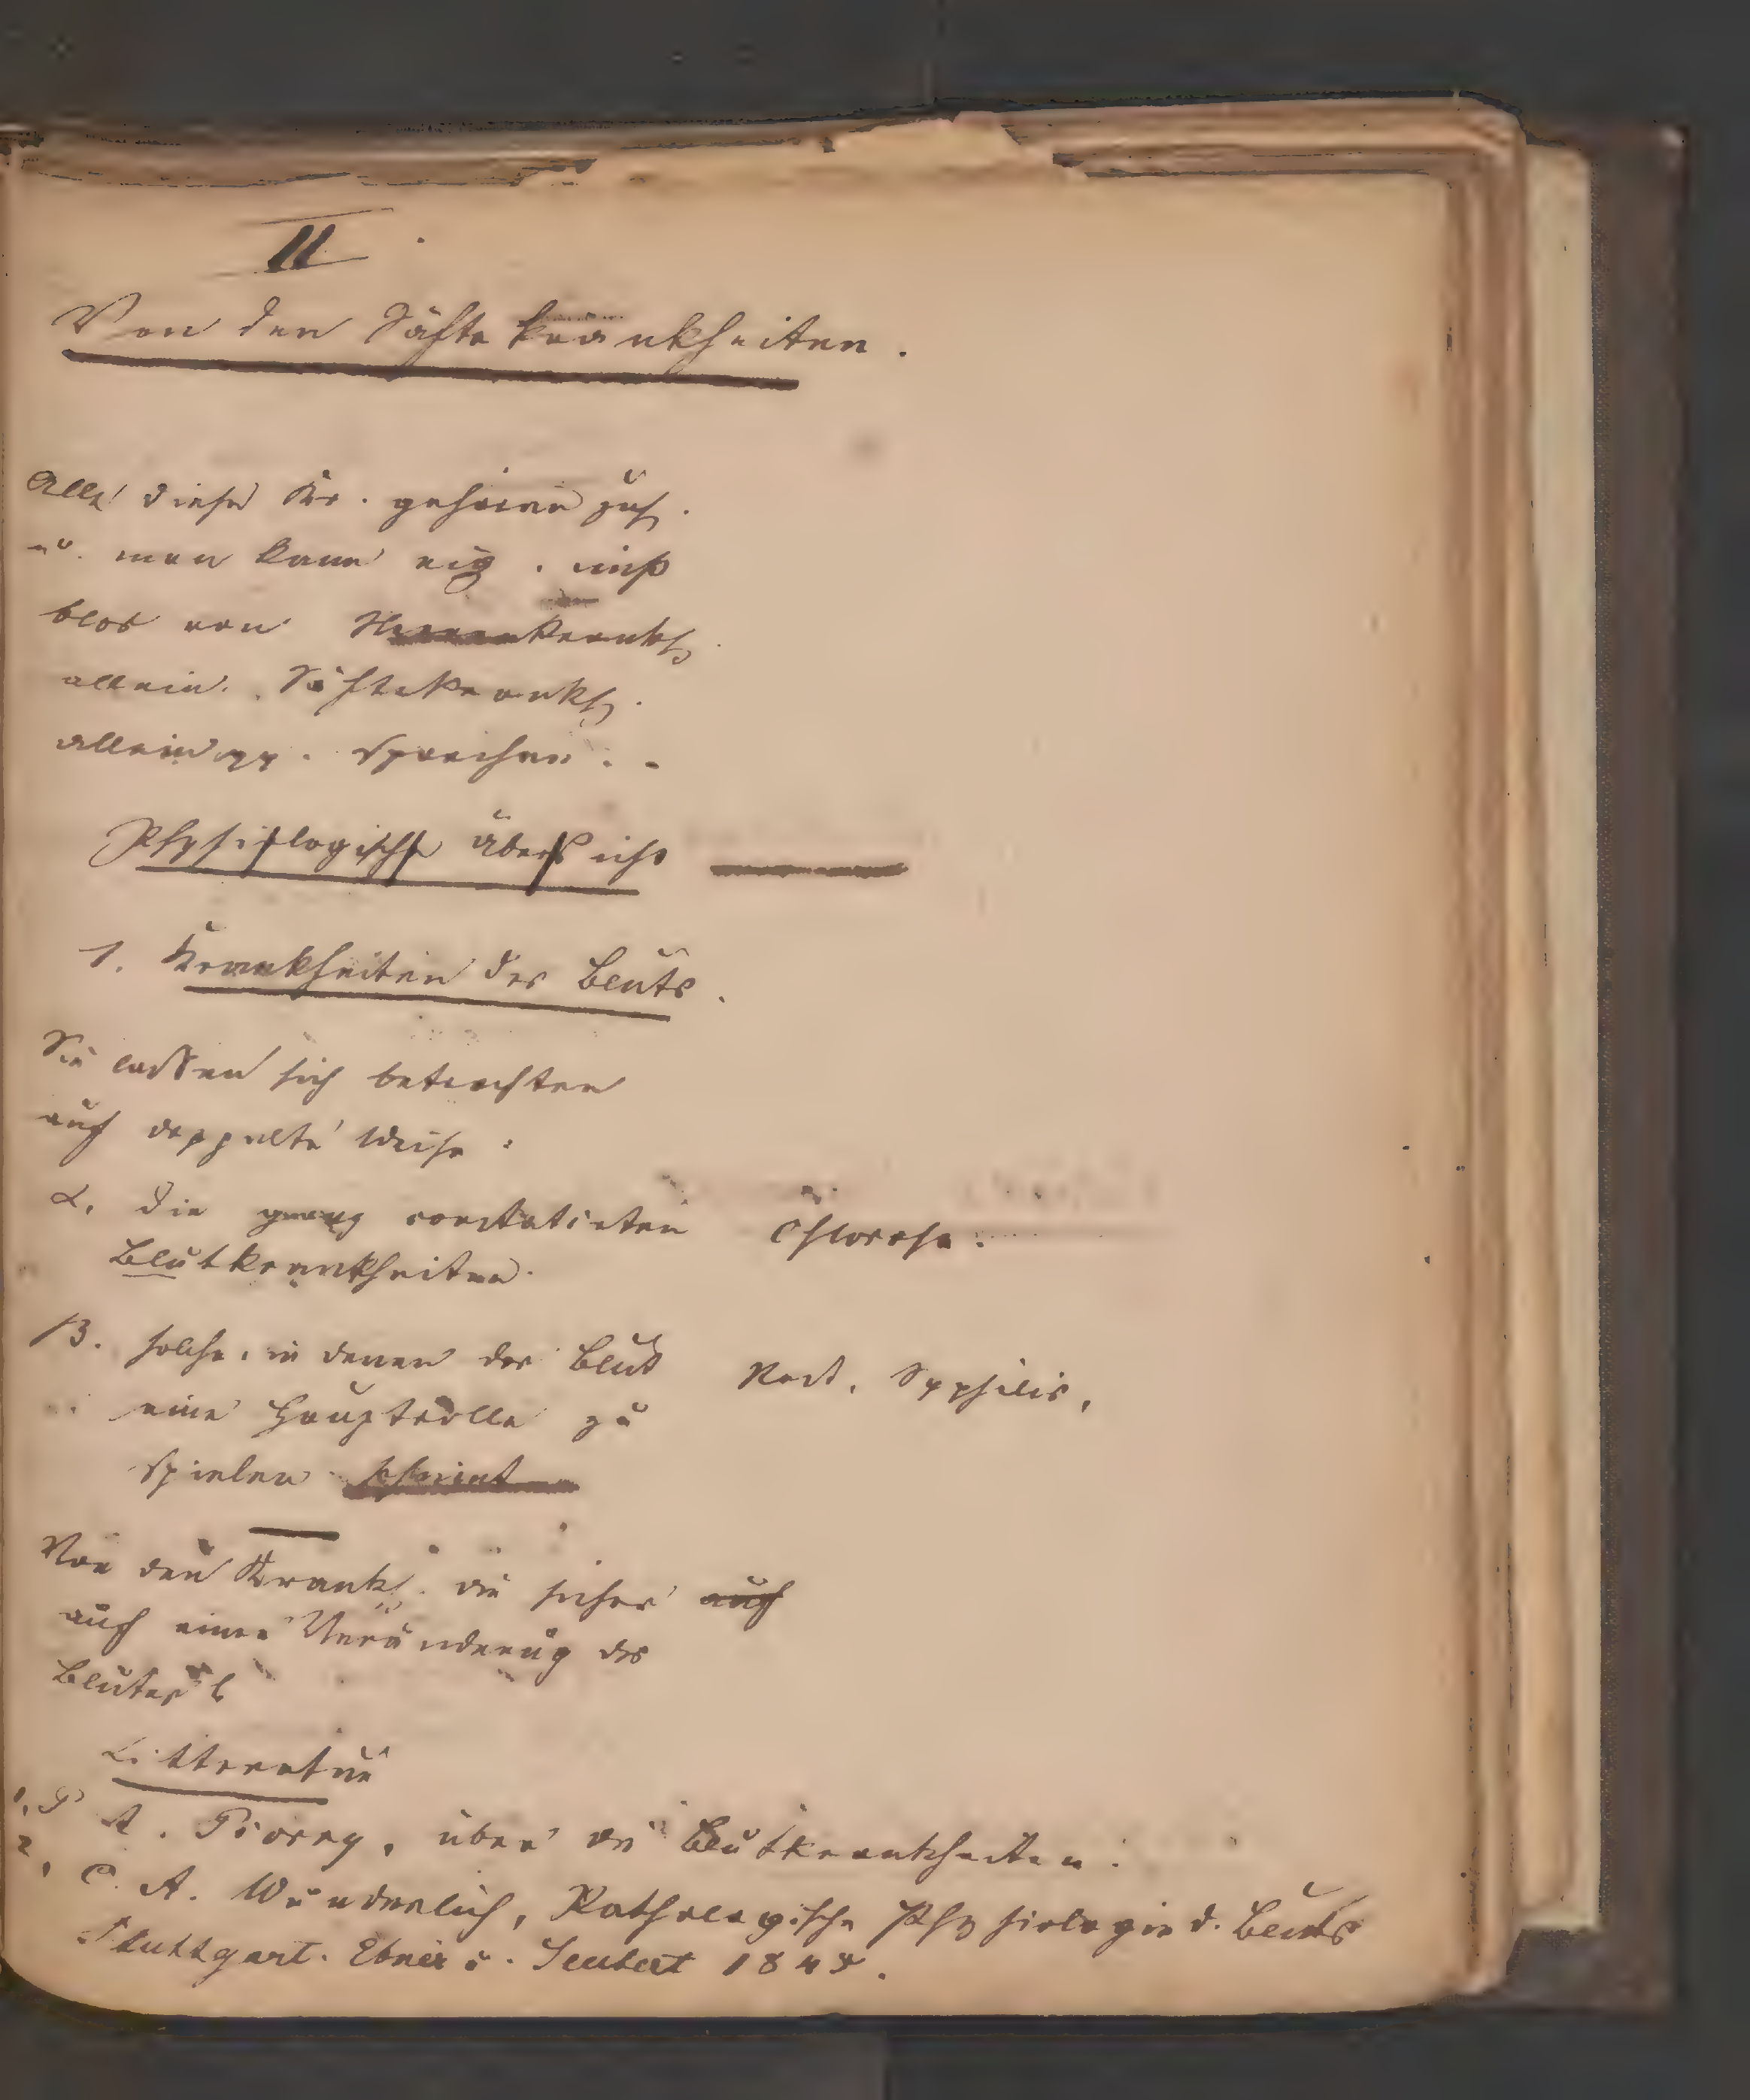 II
Von den Säftekrankheiten.
Alle diese Kr. gehören zus.
u. man kann eig. nicht
blos von Nervenkrankh.
allein. Säftekrankh.
allein pp. sprechen.
Physiologische Übersicht
1. Krankheiten des Bluts.
Sie lassen sich betrachten
auf doppelte Weise:
α. die genug constatirten Chlorose.
Blutkrankheiten.
β. solche, in denen das Blut Pest, Syphilis,
eine Hauptrolle zu
spielen scheint
Von den Krankh. die sicher auf
auf einer Veränderung des
Blutes b
Litteratur
1. P A. Piorry, über die Blutkrankheiten.
2, C. A. Wunderlich, Pathologische Physiologie d. Bluts
Stuttgart. Ebner u. Seubert 1845.